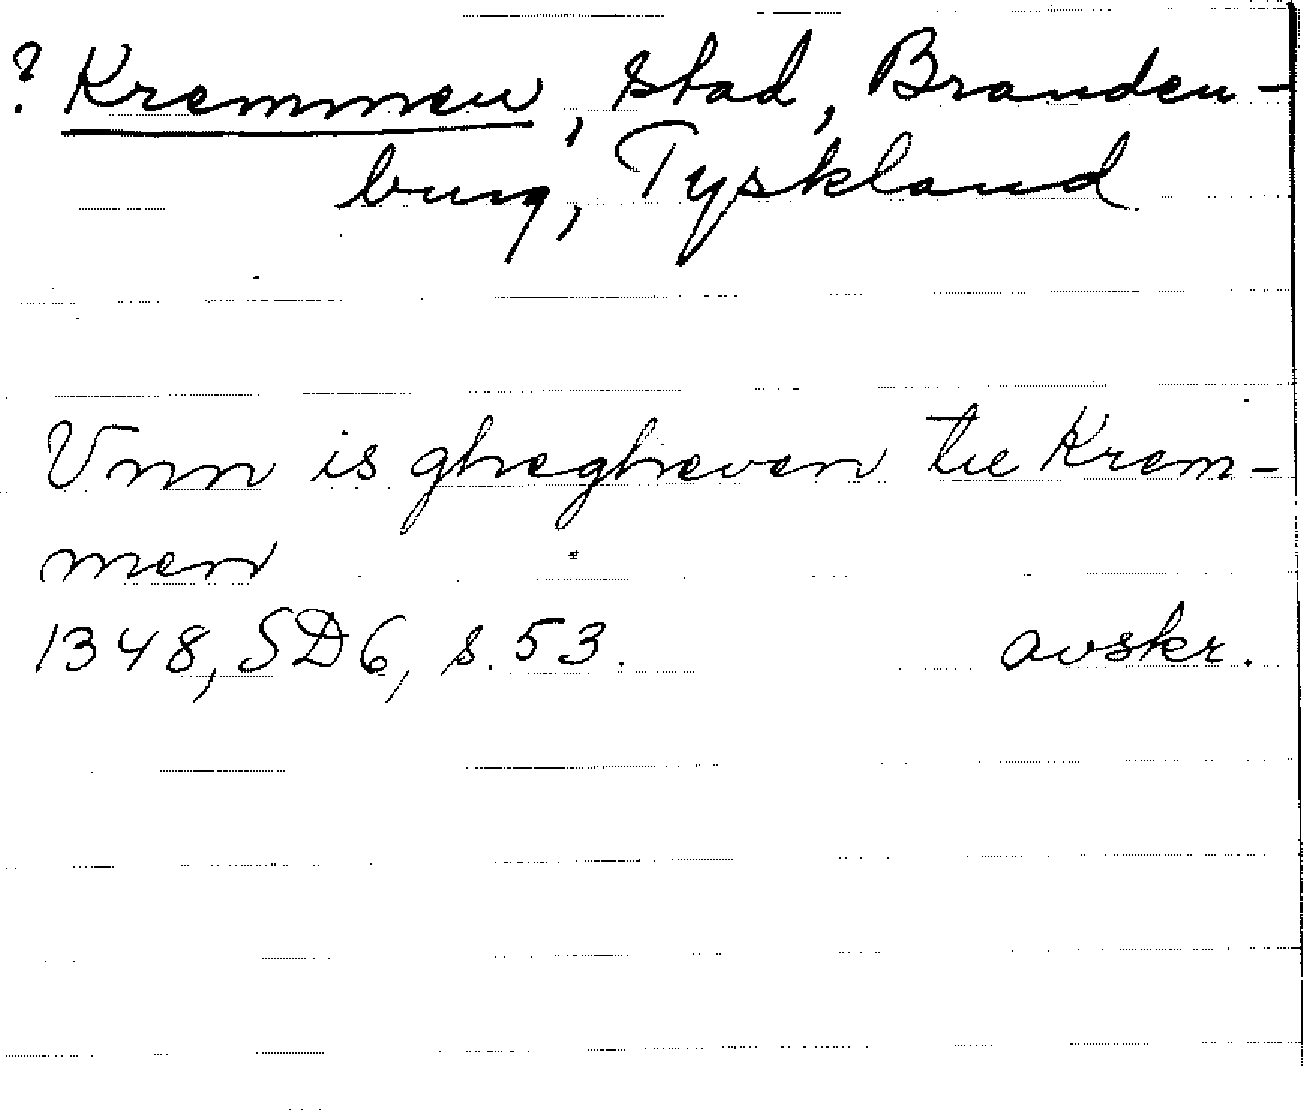 ? Kremmen, stad, Branden-
burg, Tyskland
Vnn is ghegheven tie Krem-
men
1348, SD6, s. 53. avskr.